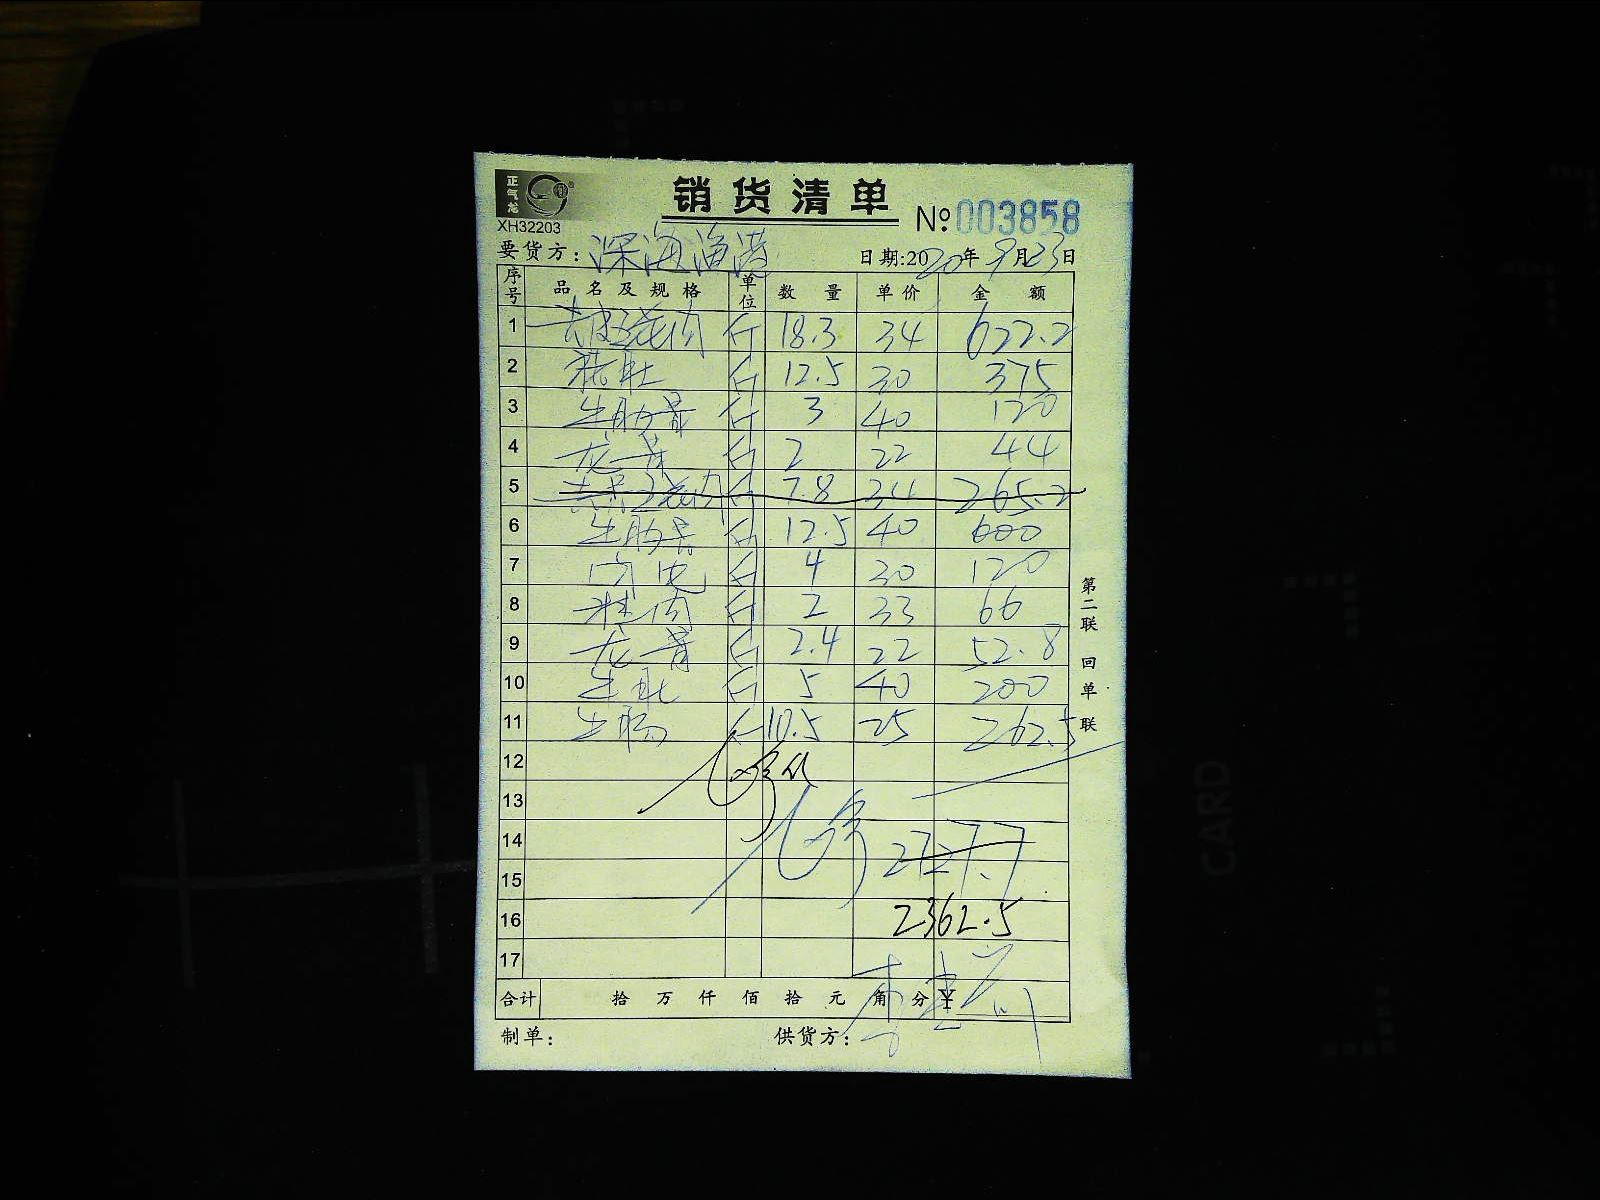 正气龙
销货清单
XH32203
№003858
要货方：深海渔港 日期:2020年9月23日
序号 品名及规格 单位 数量 单价 金额
1 去皮五花肉 斤 18.3 34 622.2
2 猪肚 斤 12.5 30 375
3 生肋骨 斤 3 40 120
4 龙骨 斤 2 22 44
5 五花肉 斤 7.8 34 265.2
6 生肋骨 斤 12.5 40 600
7 斤 4 30 120
8 肉 斤 2 33 66
9 龙骨 斤 2.4 22 52.8
10 生肚 斤 5 40 200
11 生肠 斤 10.5 25 262.5
12
13
14 2727.7
15
16 2362.5
17
合计 拾 万 仟 佰 拾 元 角 分 ￥
制单： 供货方：
第二联 回单联
CARD